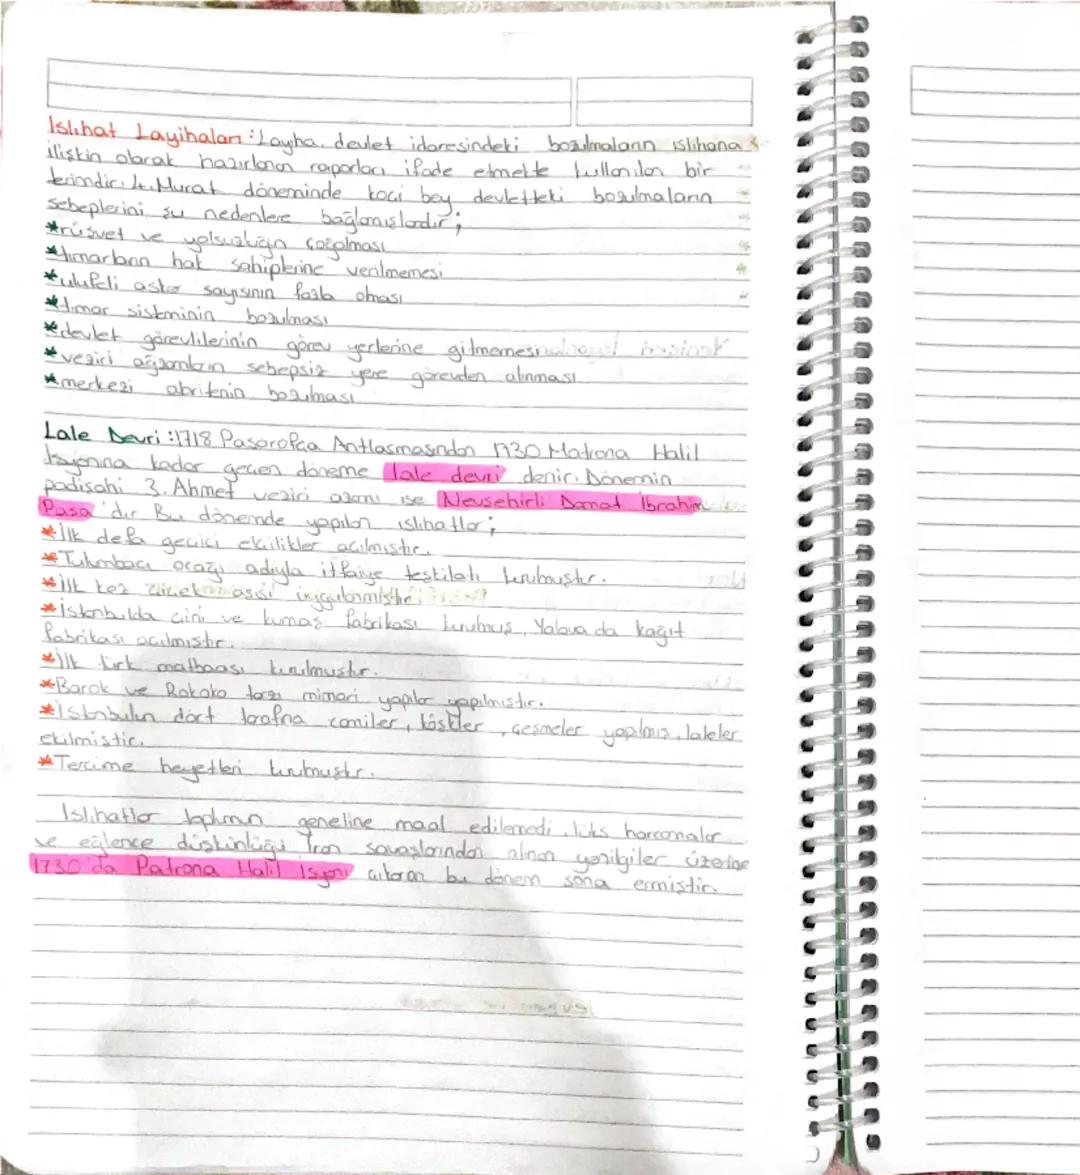 Islıhat Layihaları : Layha, devlet idaresindeki bozulmaların ıslıhana
ilişkin olarak hazırlanan raporları ifade etmekte kullanılan bir
terimdir. 4. Murat döneminde koçi bey devletteki bozulmaların
sebeplerini şu nedenlere bağlamışlardır;
*rüşvet ve yolsuzluğun çoğalması
*tımarların hak sahiplerine verilmemesi
*ulufeli asker sayısının fazla olması
*tımar sistminin bozulması
*devlet görevlilerinin görev yerlerine gitmemesi
*veziri ağzamların sebepsiz yere görevden alınması
*merkezi otoritenin bozulması
Lale Devri : 1718 Pasarofça Antlaşmasından 1730 Patrona Halil
İsyanına kadar geçen döneme lale devri denir. Dönemin
padişahi 3. Ahmet veziri azamı ise Nevşehirli Damat İbrahim
Paşa'dır Bu dönemde yapılan ıslıhatlar;
*İlk defa geçici elçilikler açılmıştır.
*Tulumbacı ocağı adıyla itfaiye teşkilatı kurulmuştur.
*İlk kez çiçek aşısı uygulanmıştır.
*İstanbulda çini ve kumaş fabrikası kurulmuş, Yalova da kağıt
fabrikası açılmıştır.
*İlk türk matbaası kurulmuştur.
*Barok ve Rokoko tarzı mimari yapılar yapılmıştır.
*İstanbulun dört tarafına camiler, köşkler, çeşmeler yapılmış, laleler
ekilmiştir.
*Tercime heyetleri kurulmuştur.
Islıhatlar toplumun geneline maal edilemedi, lüks harcamalar
ve eğlence düşkünlüğü İran savaşlarından alınan yenilgiler üzerine
1730'da Patrona Halil İsyanı çıkaran bu dönem sona ermiştir.